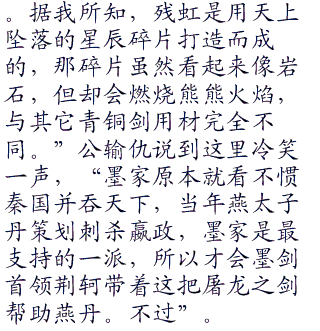 。据我所知，残虹是用天上
坠落的星辰碎片打造而成
的，那碎片虽然看起来像岩
石，但却会燃烧熊熊火焰，
与其它青铜剑用材完全不
同。”公输仇说到这里冷笑
一声，“墨家原本就看不惯
秦国并吞天下，当年燕太子
丹策划刺杀嬴政，墨家是最
支持的一派，所以才会墨剑
首领荆轲带着这把屠龙之剑
帮助燕丹。不过”。